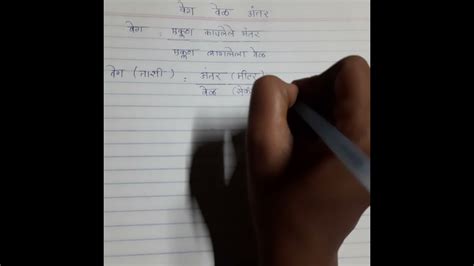 वेग वेळ अंतर
वेग : एकूण कापलेले अंतर
एकूण लागलेला वेळ
वेग (ताशी) : अंतर (मीटर)
वेळ